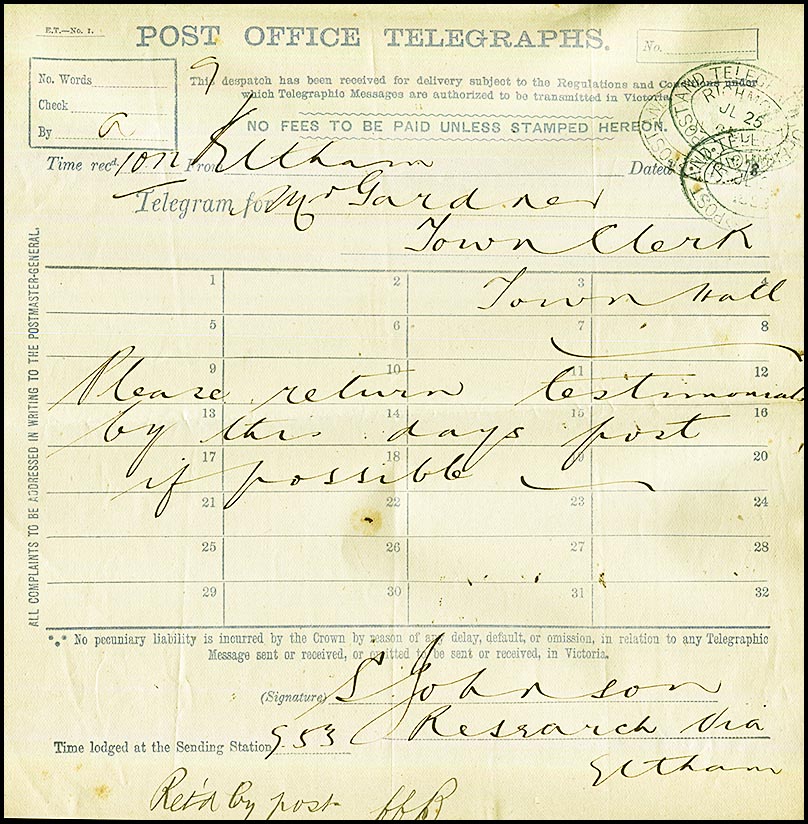 E.T.—No. 1.
POST OFFICE TELEGRAPHS.
No.
No. Words
9
Check
By a
This despatch has been received for delivery subject to the Regulations and Conditions under
which Telegraphic Messages are authorized to be transmitted in Victoria.
NO FEES TO BE PAID UNLESS STAMPED HEREON.
POST AND TELEGRAPH
RICHMOND
JL 25
Time recd. 10 From Eltham Dated
Telegram for Mr Gardner
Town Clerk
Town Hall
1 2 3 4
5 6 7 8
9 10 11 12
Please return testimonials
13 14 15 16
by this days post
17 18 19 20
if possible
21 22 23 24
25 26 27 28
29 30 31 32
ALL COMPLAINTS TO BE ADDRESSED IN WRITING TO THE POSTMASTER-GENERAL.
No pecuniary liability is incurred by the Crown by reason of any delay, default, or omission, in relation to any Telegraphic
Message sent or received, or omitted to be sent or received, in Victoria.
(Signature) S Johnson
Research Via
Time lodged at the Sending Station 9.53
Eltham
Retd by post